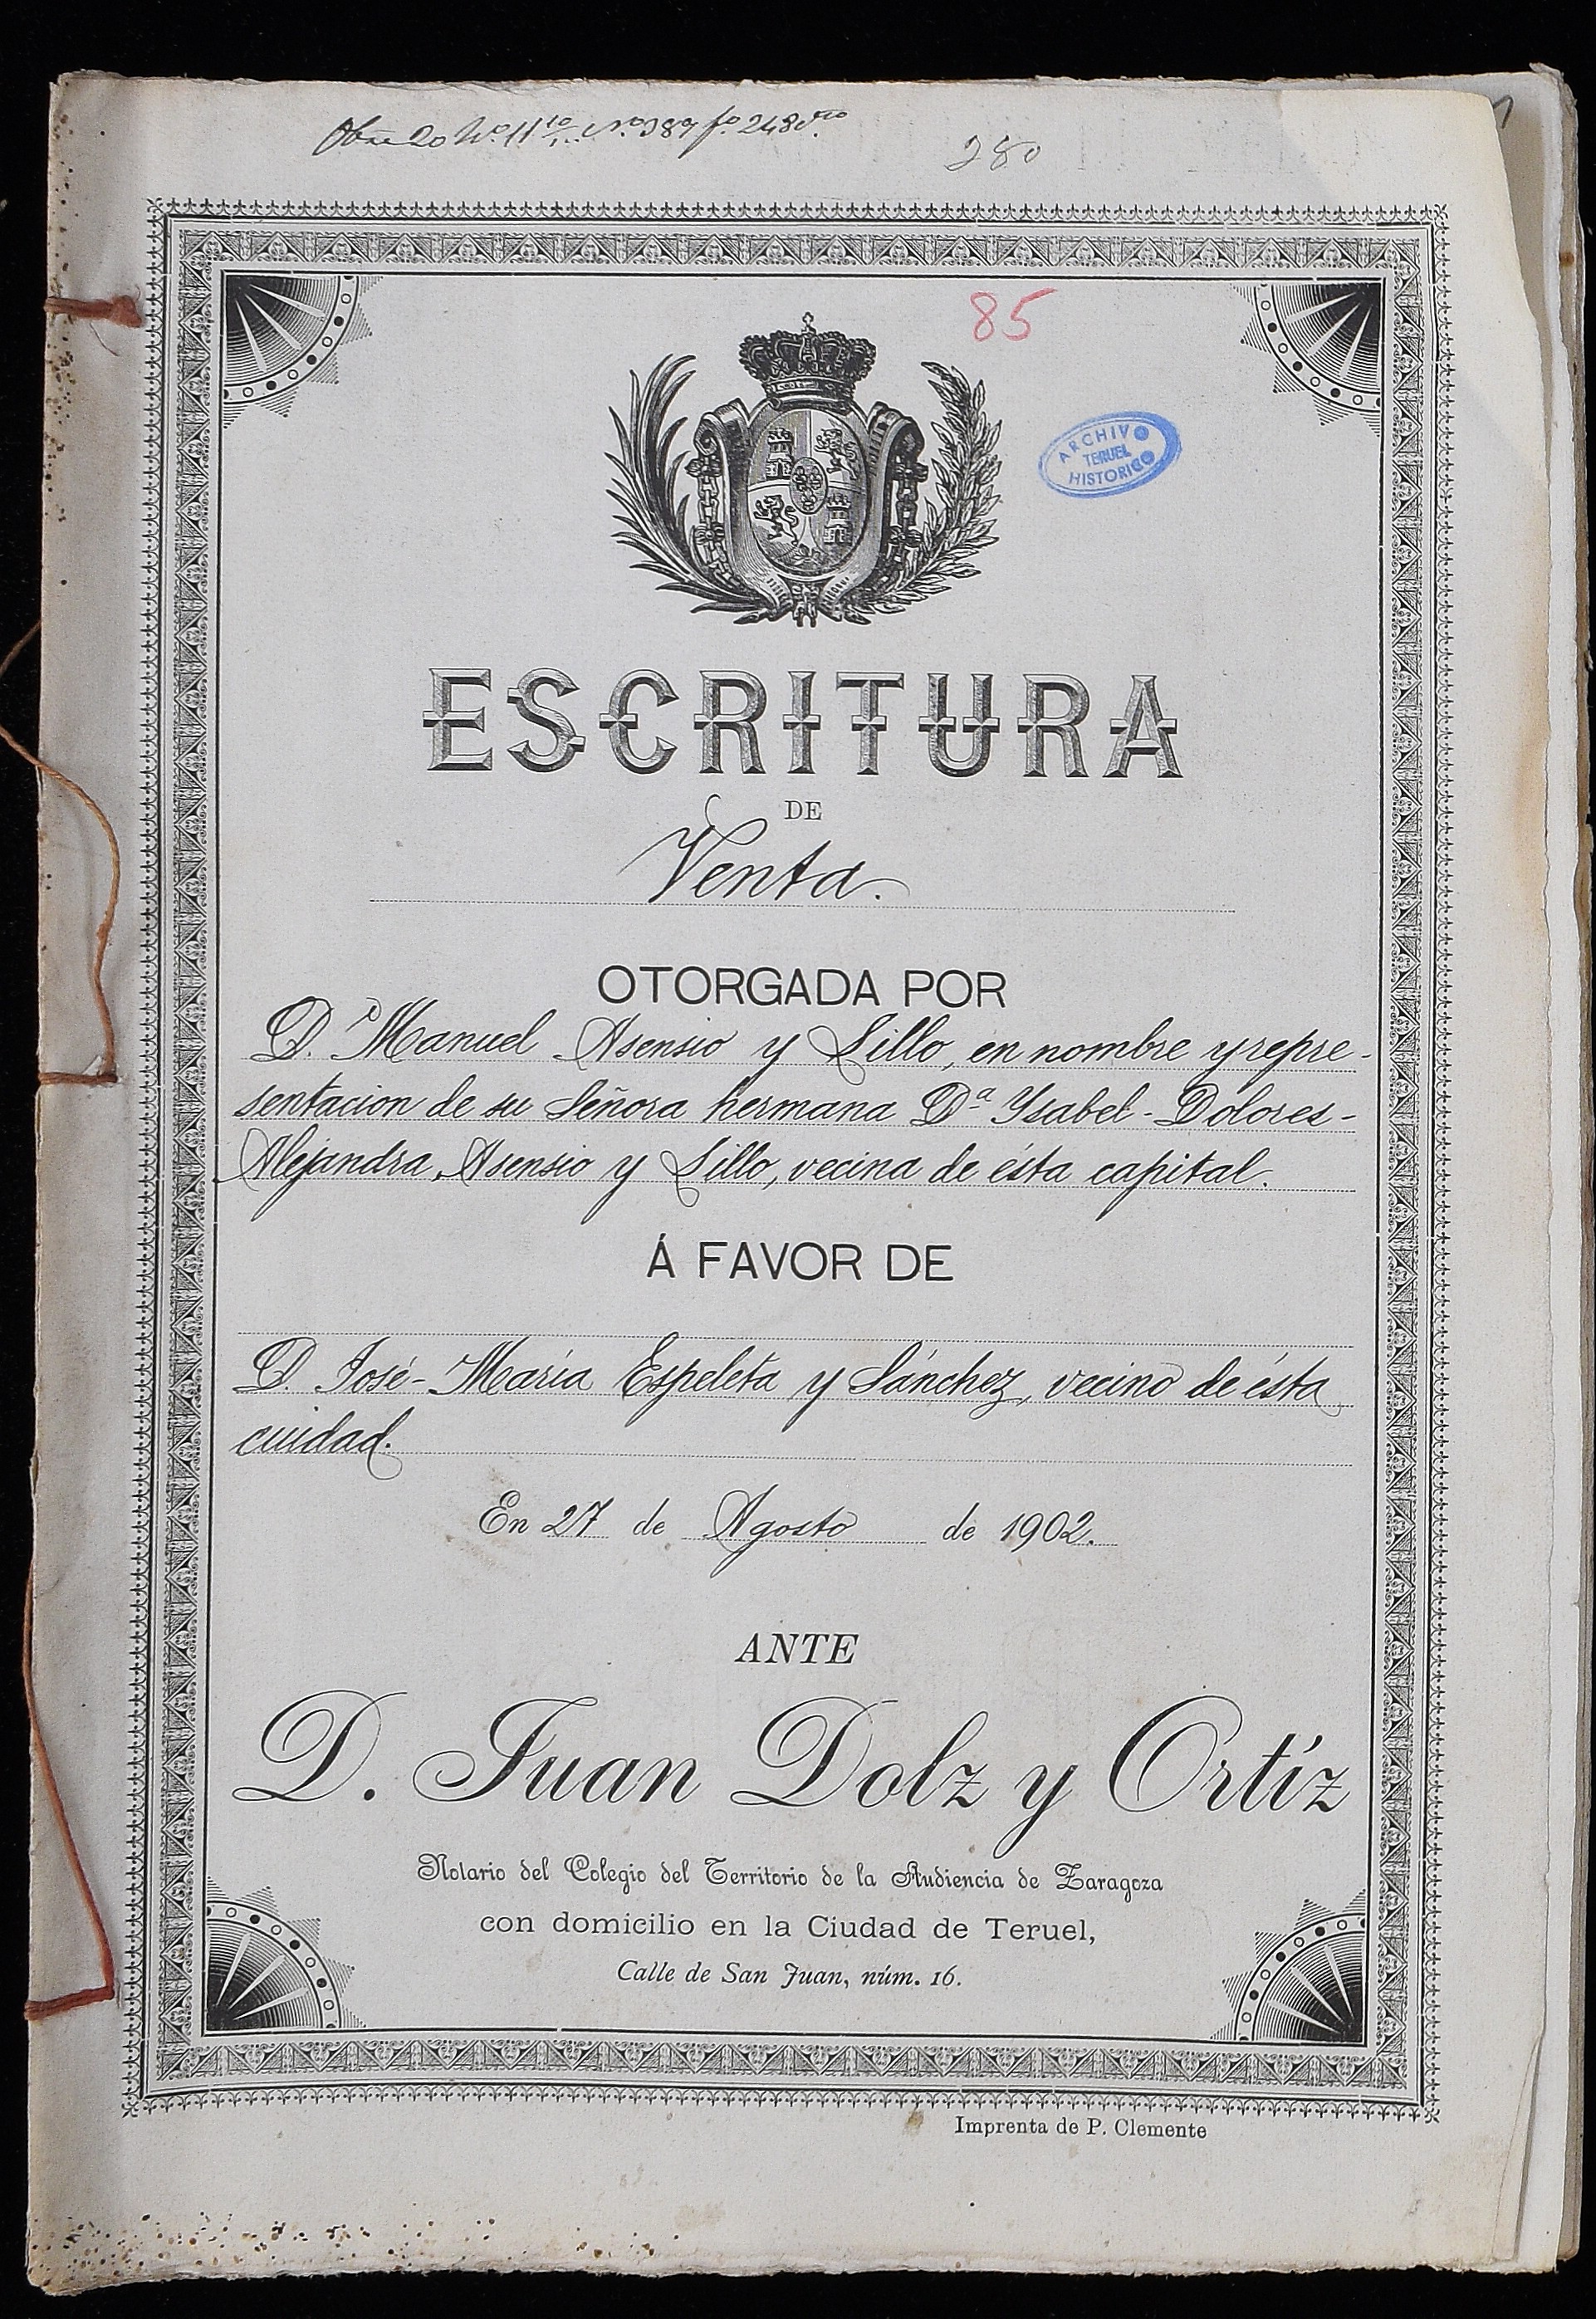 Nº 389 fº 248 vto
280
85
ARCHIVO
TERUEL
HISTORICO
ESCRITURA
DE
Venta.
OTORGADA POR
D. Manuel Asensio y Lillo, en nombre y repre-
sentacion de su Señora hermana Dª Ysabel-Dolores-
Alejandra Asensio y Lillo, vecina de ésta capital.
Á FAVOR DE
D. José-María Espeleta y Sánchez, vecino de ésta
ciudad.
En 27 de Agosto de 1902.
ANTE
D. Juan Dolz y Ortíz
Notario del Colegio del Territorio de la Audiencia de Zaragoza
con domicilio en la Ciudad de Teruel,
Calle de San Juan, núm. 16.
Imprenta de P. Clemente